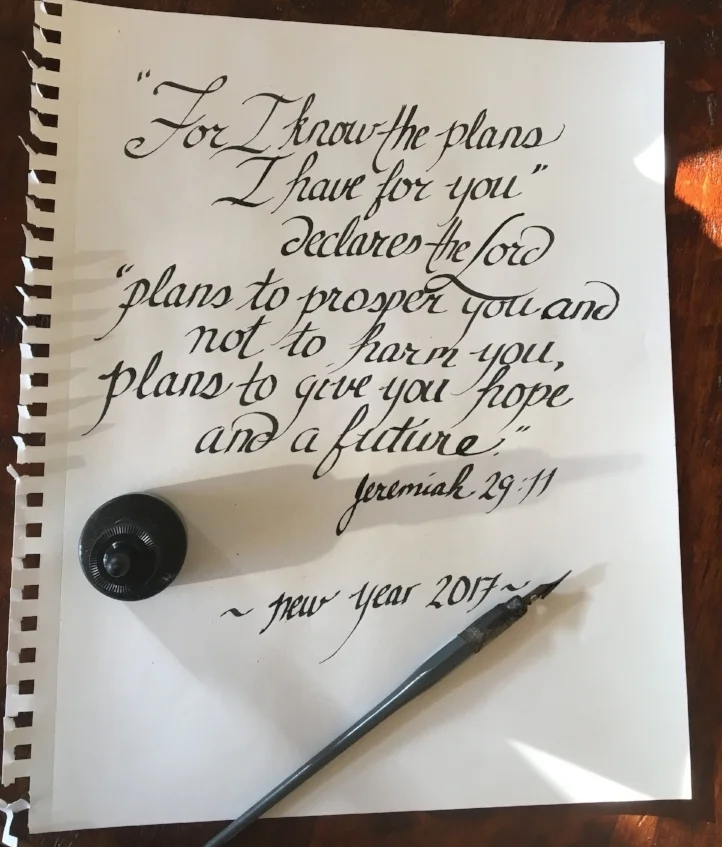 "For I know the plans
I have for you"
declares the Lord
"plans to prosper you and
not to harm you,
plans to give you hope
and a future."
Jeremiah 29:11
~ new year 2017 ~